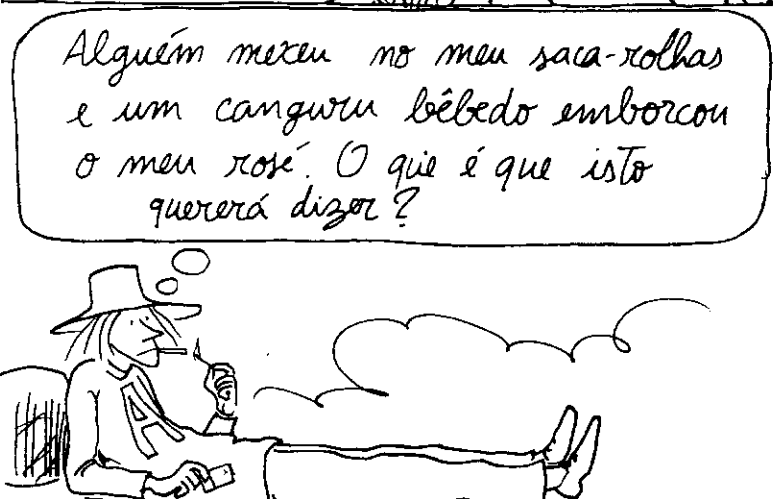 Alguém mexeu no meu saca-rolhas
e um canguru bêbedo emborcou
o meu rosé. O que é que isto
quererá dizer?
A